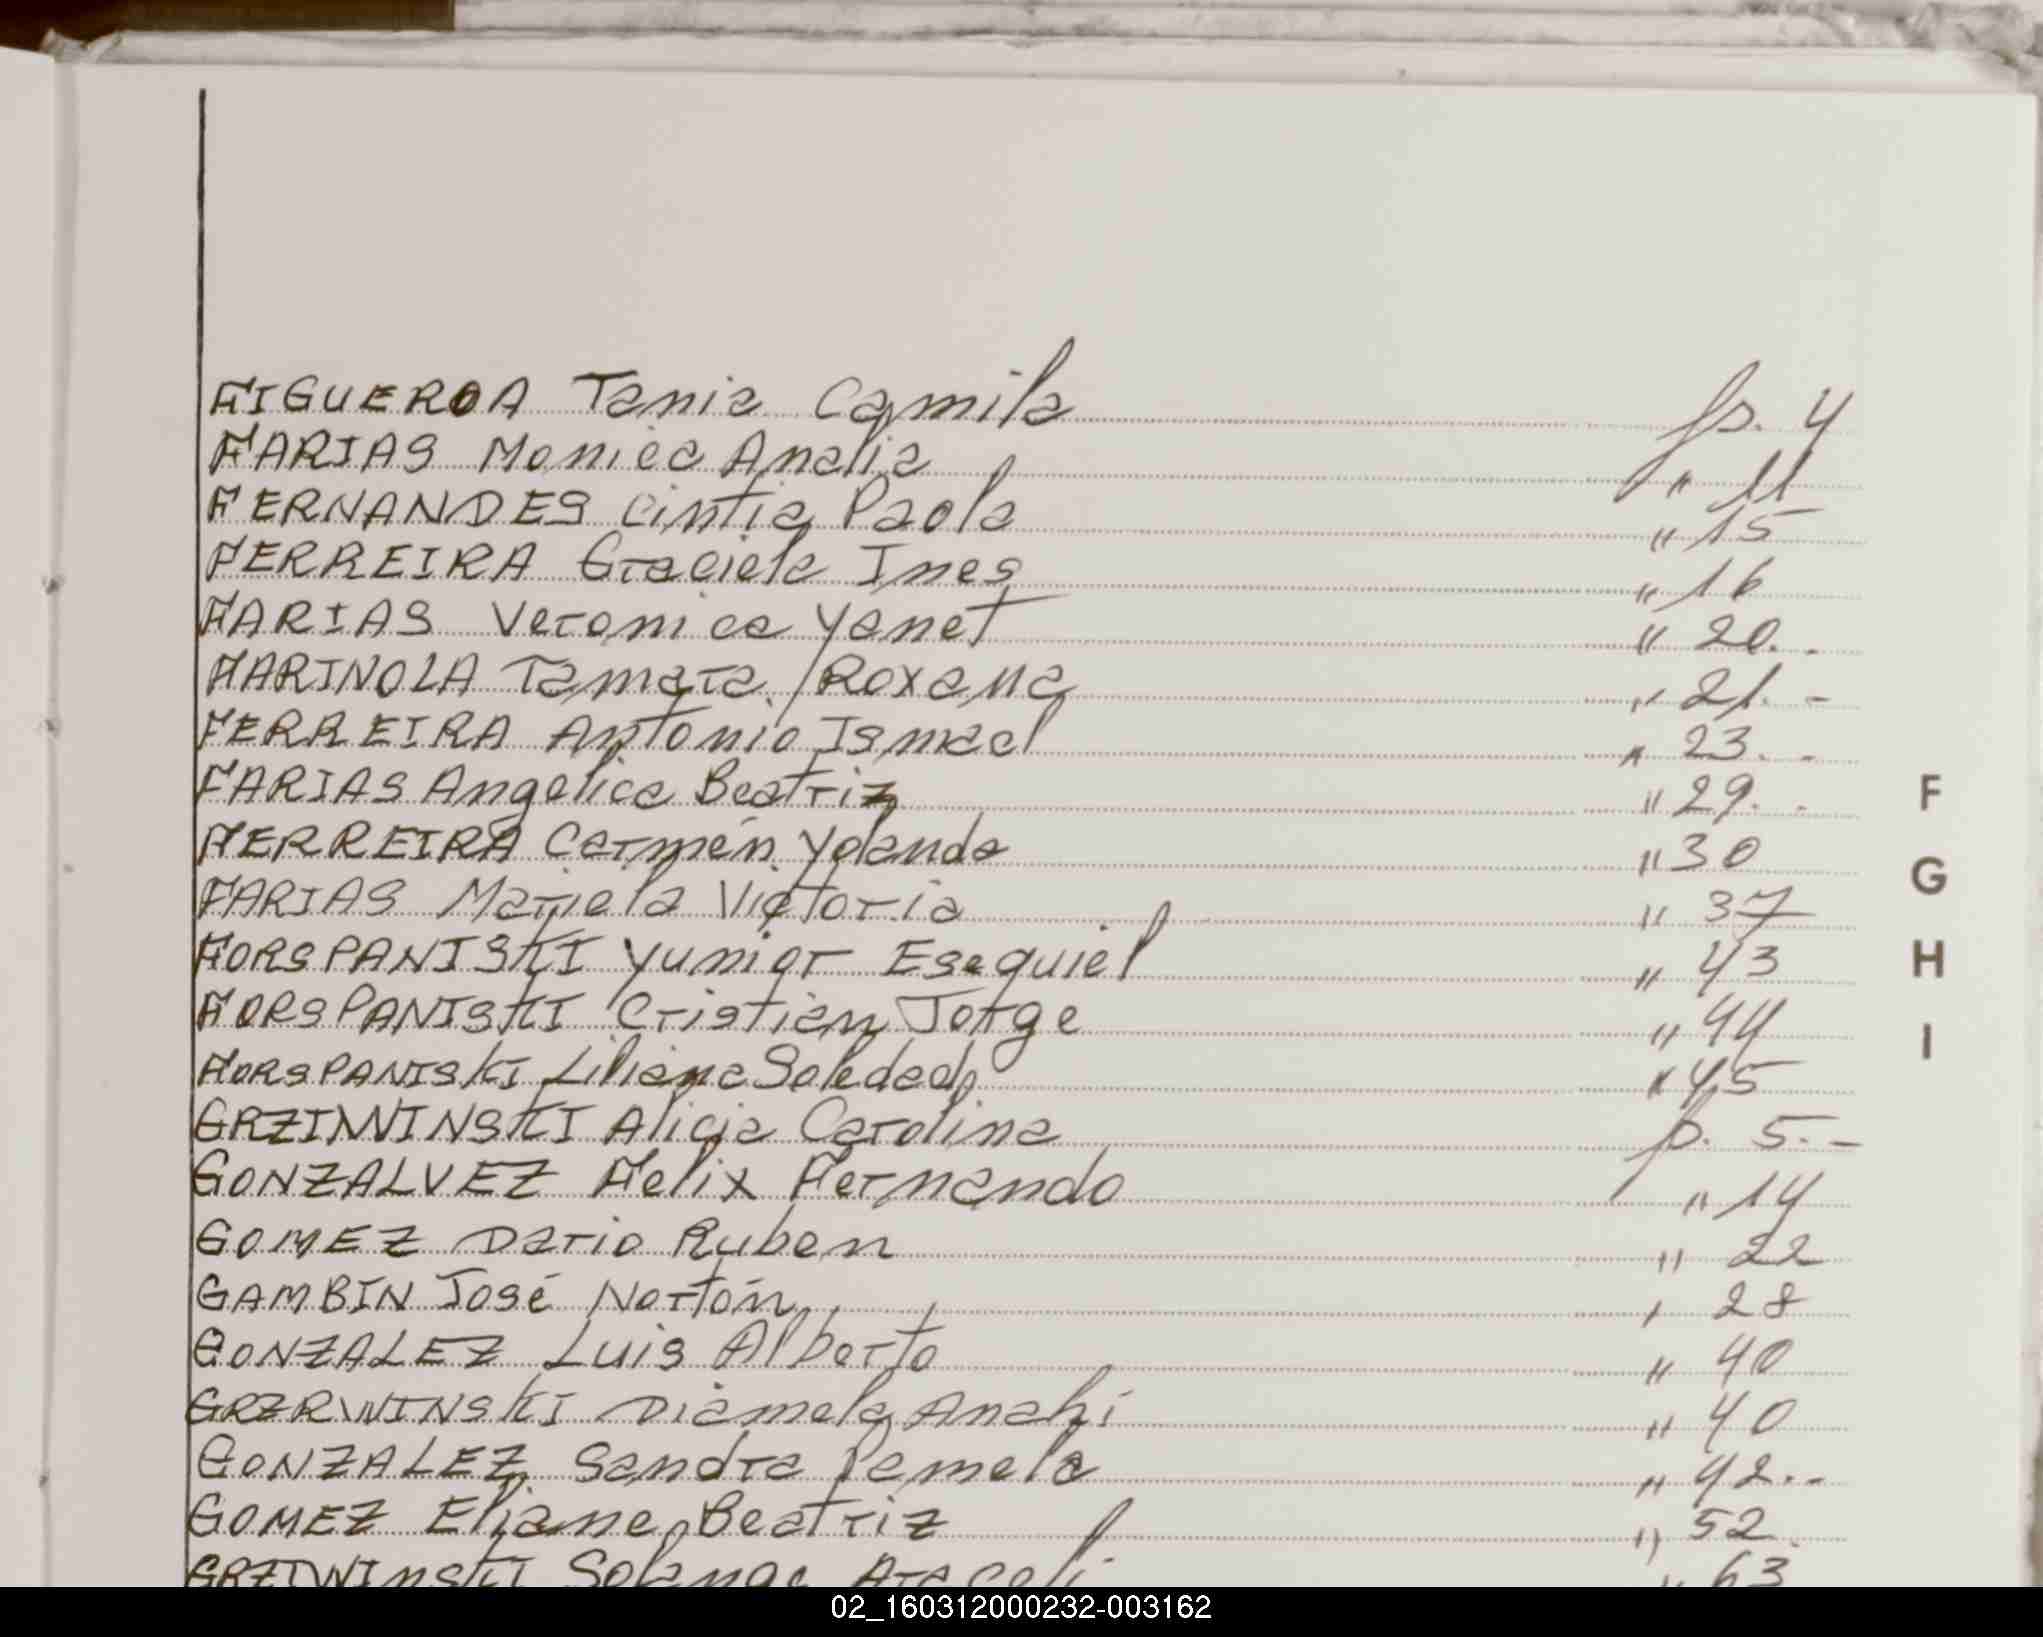 FIGUEROA Tania Camila fs. 4
FARIAS Monica Analia " 11
FERNANDES Cintia Paola " 15
FERREIRA Graciela Ines " 16
FARIAS Veronica Yanet " 20.-
FARINOLA Tamara Roxana " 21.-
FERREIRA Antonio Ismael " 23.-
FARIAS Angelica Beatriz " 29.-
FERREIRA Carmen Yolanda " 30
FARIAS Mariela Victoria " 37
FORSPANISKI Yunior Esequiel " 43
FORSPANISKI Cristian Jorge " 44
FORSPANISKI Liliana Soledad " 45
GRZIWINSKI Alicia Carolina fs. 5.-
GONZALVEZ Felix Fernando " 14
GOMEZ Dario Ruben " 22
GAMBIN José Nortón " 28
GONZALEZ Luis Alberto " 40
GRZRWINSKI Diamela Anahi " 40
GONZALEZ Sandra Pamela " 42.-
GOMEZ Eliane Beatriz " 52
GRZIWINSKI Solange Araceli " 63
F
G
H
I
02_160312000232-003162